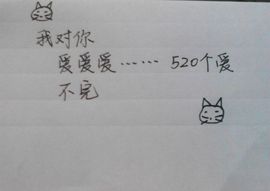 我对你
爱爱爱…… 520个爱
不完